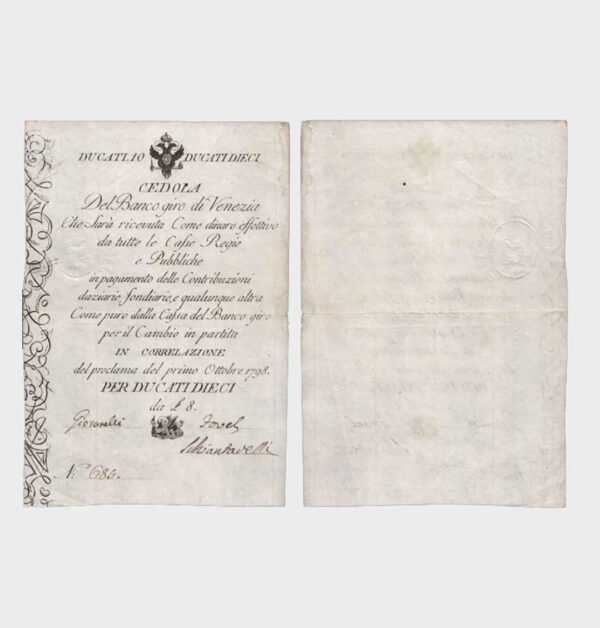 DUCATI.10 DUCATI DIECI
CEDOLA
Del Banco giro di Venezia
Che Sarà ricevuta Come dinaro effettivo
da tutte le Casse Regie
e Pubbliche
in pagamento delle Contribuzioni
daziarie, fondiarie, e qualunque altra
Come pure dalla Cassa del Banco giro
per il Cambio in partita
IN CORRELAZIONE
del proclama del primo Ottobre 1798.
PER DUCATI DIECI
da £ 8.
Giovanelli